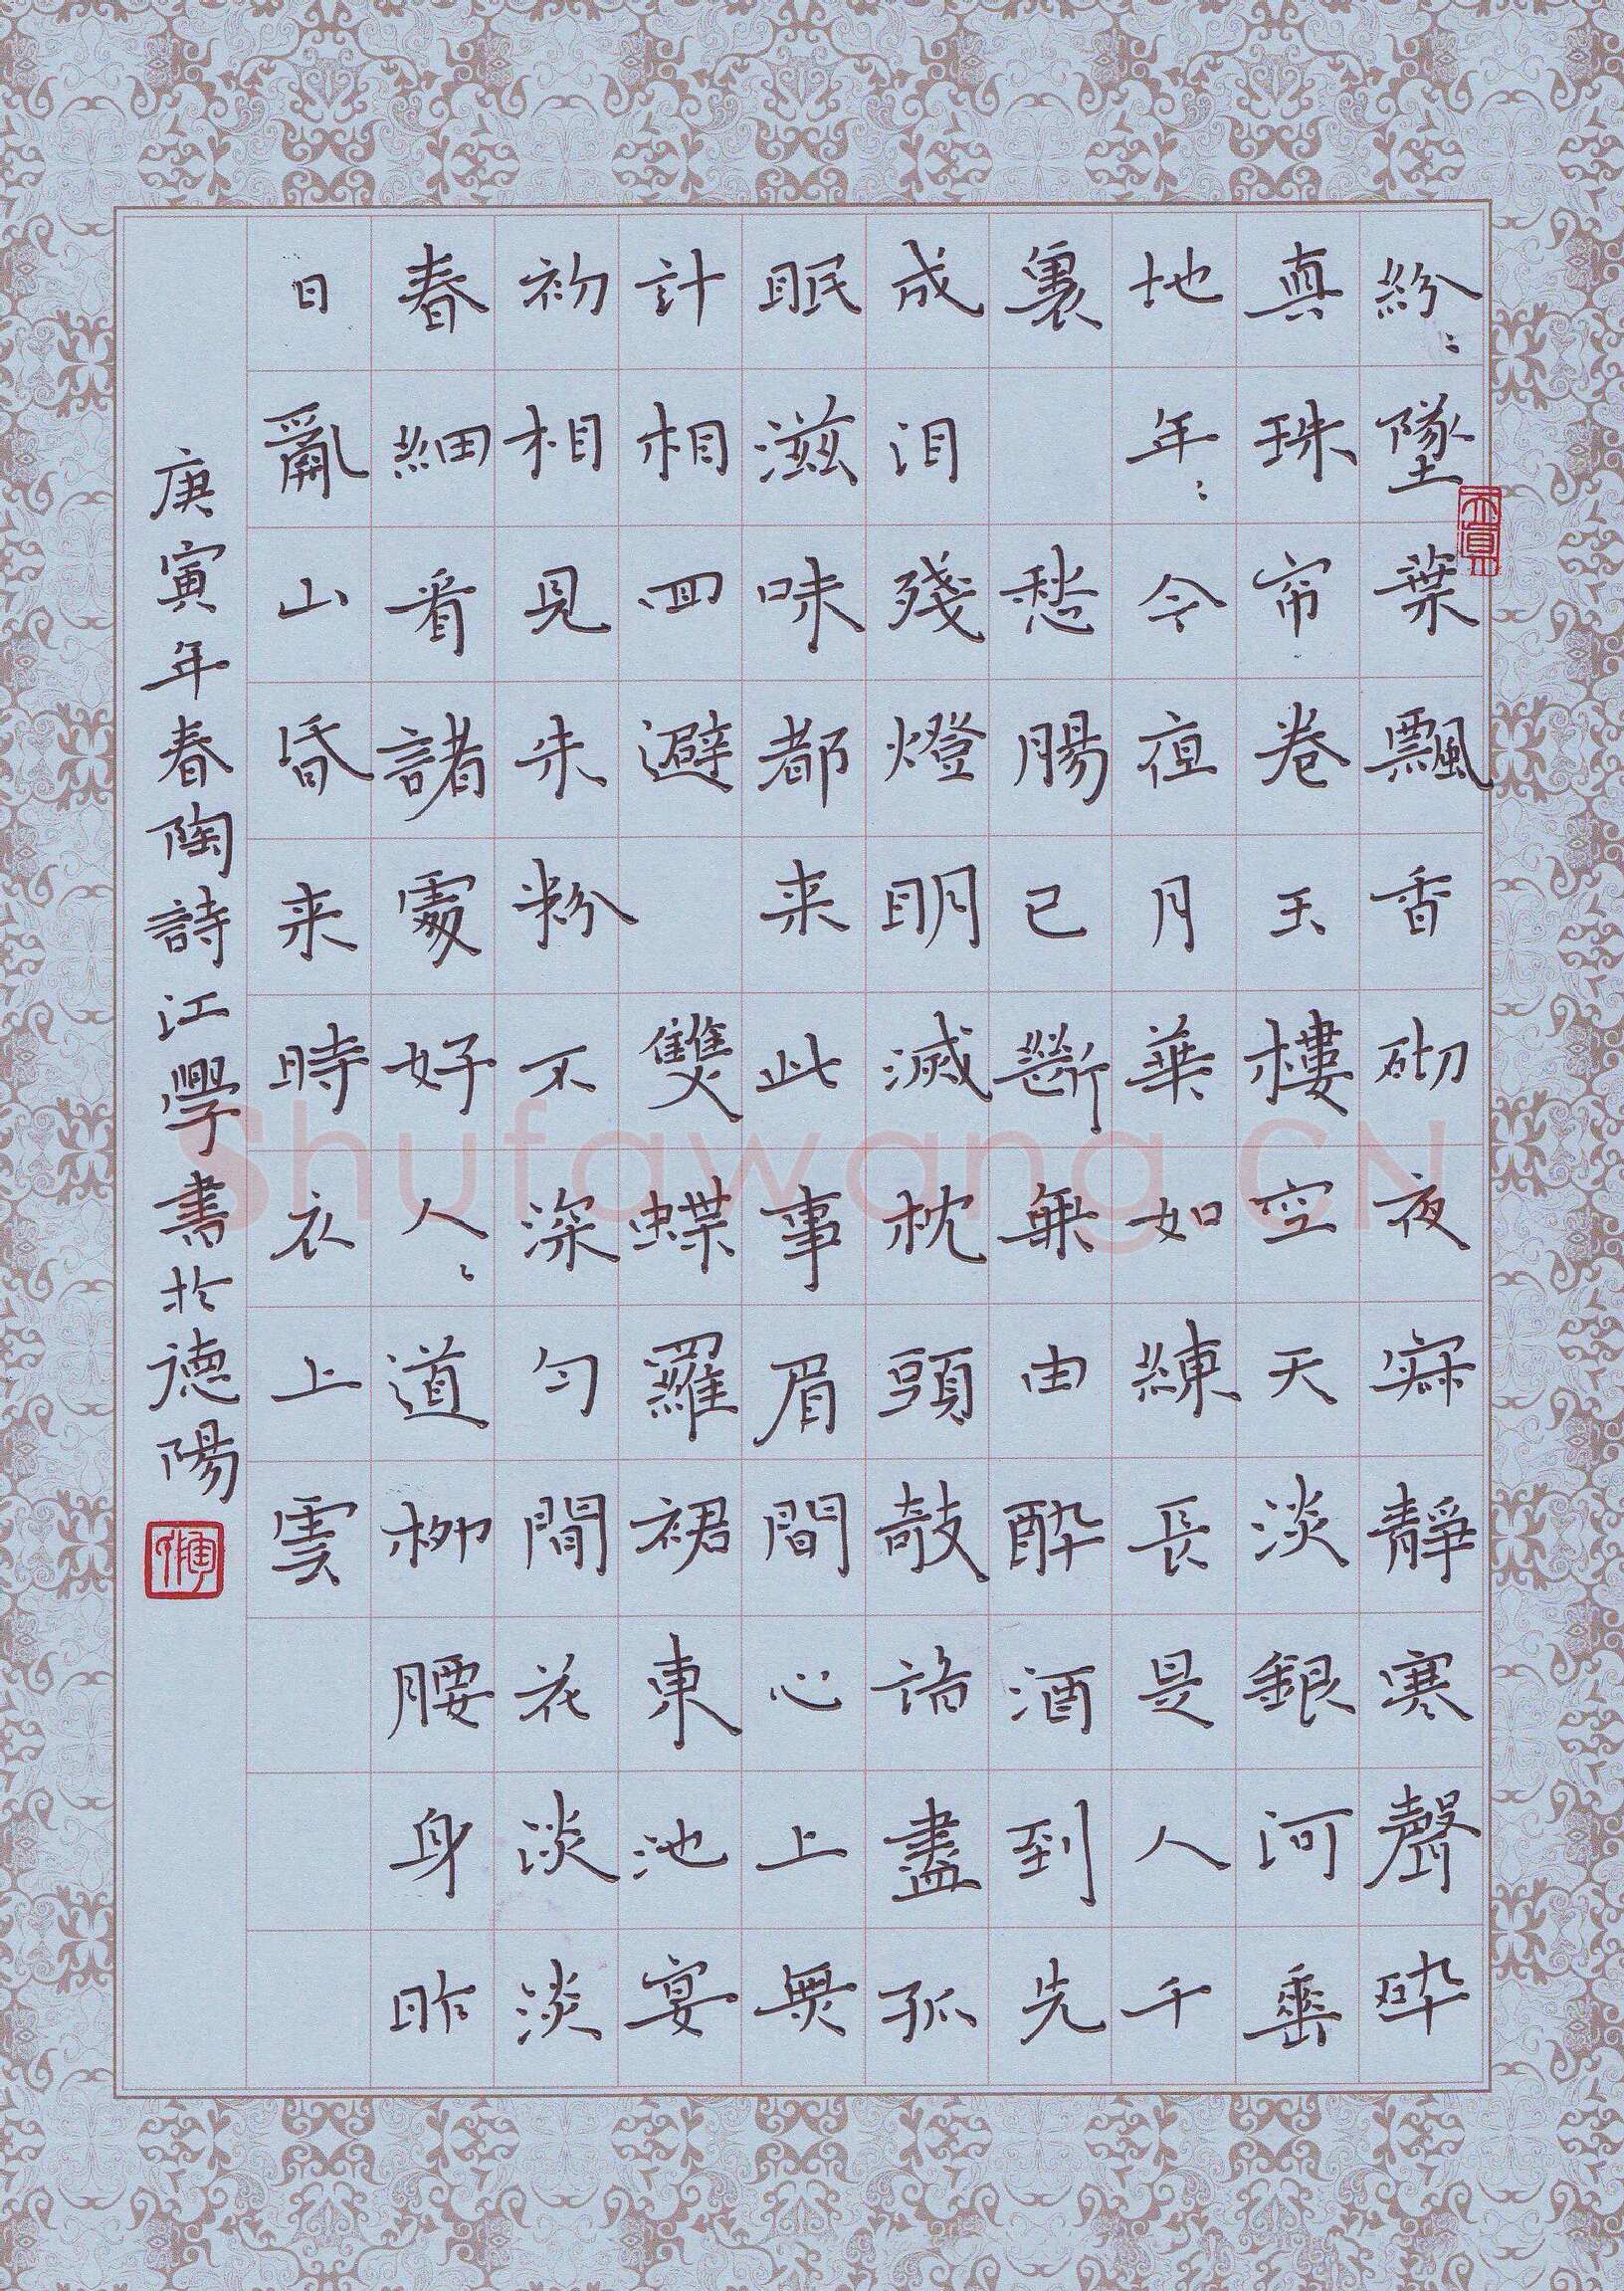 紛〻墜葉飄香砌夜寂靜寒聲碎
真珠帘卷玉樓空天淡銀河垂
地年〻今夜月華如練長是人千
裏 愁腸已斷無由醉酒到先
成泪殘燈明滅枕頭攲諳盡孤
眠滋味都来此事眉間心上無
計相回避 雙蝶羅裙東池宴
初相見朱粉不深勻閒花淡淡
春細看諸處好人〻道柳腰身昨
日亂山昏来時衣上雲
庚寅年春陶詩江學書於德陽
Shufawang.CN